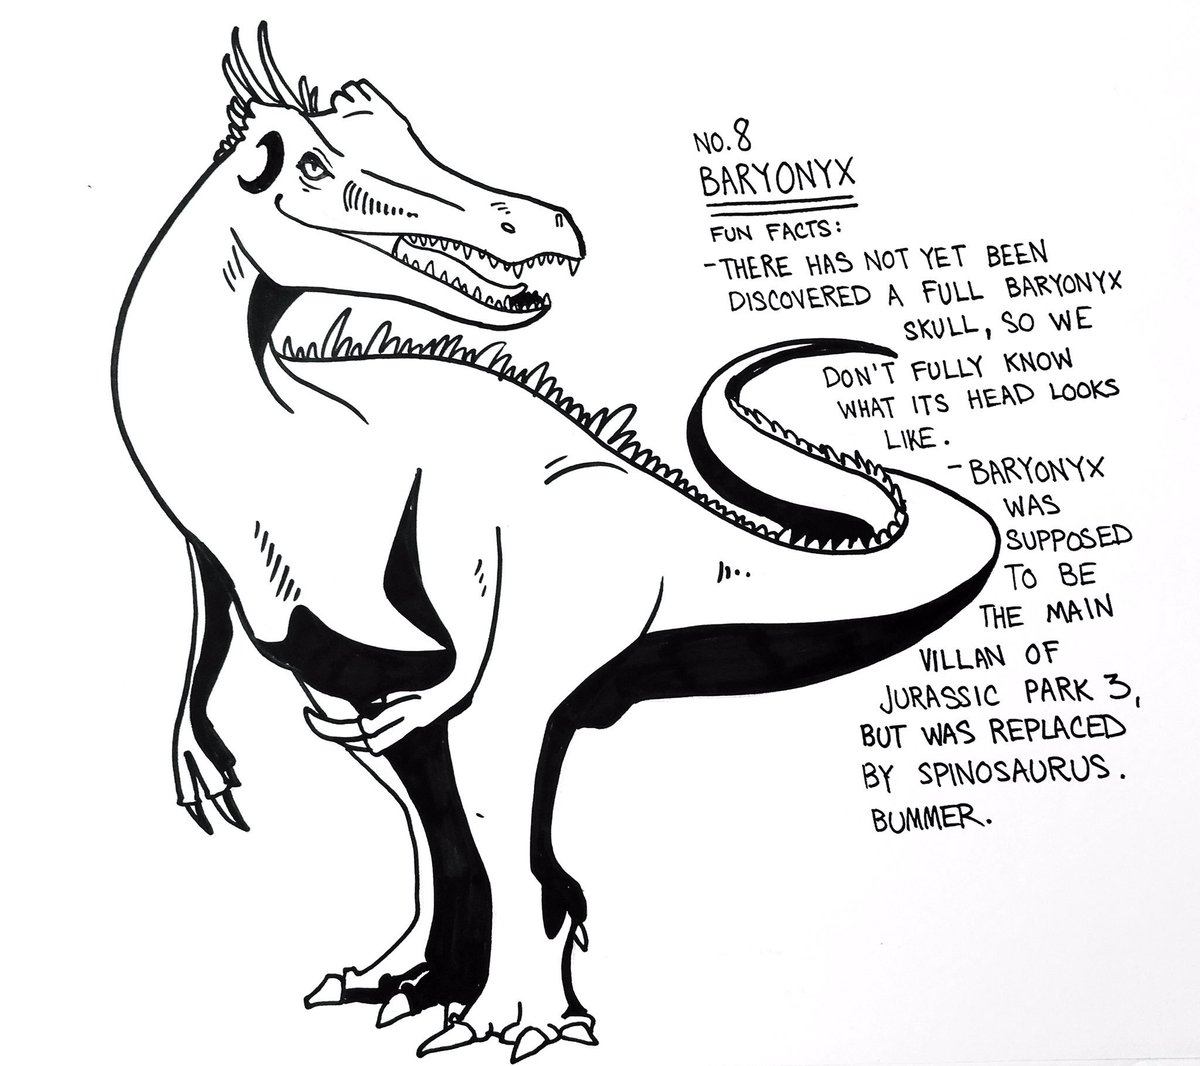 NO. 8
BARYONYX
FUN FACTS:
- THERE HAS NOT YET BEEN
DISCOVERED A FULL BARYONYX
SKULL, SO WE
DON'T FULLY KNOW
WHAT ITS HEAD LOOKS
LIKE.
- BARYONYX
WAS
SUPPOSED
TO BE
THE MAIN
VILLAN OF
JURASSIC PARK 3,
BUT WAS REPLACED
BY SPINOSAURUS.
BUMMER.